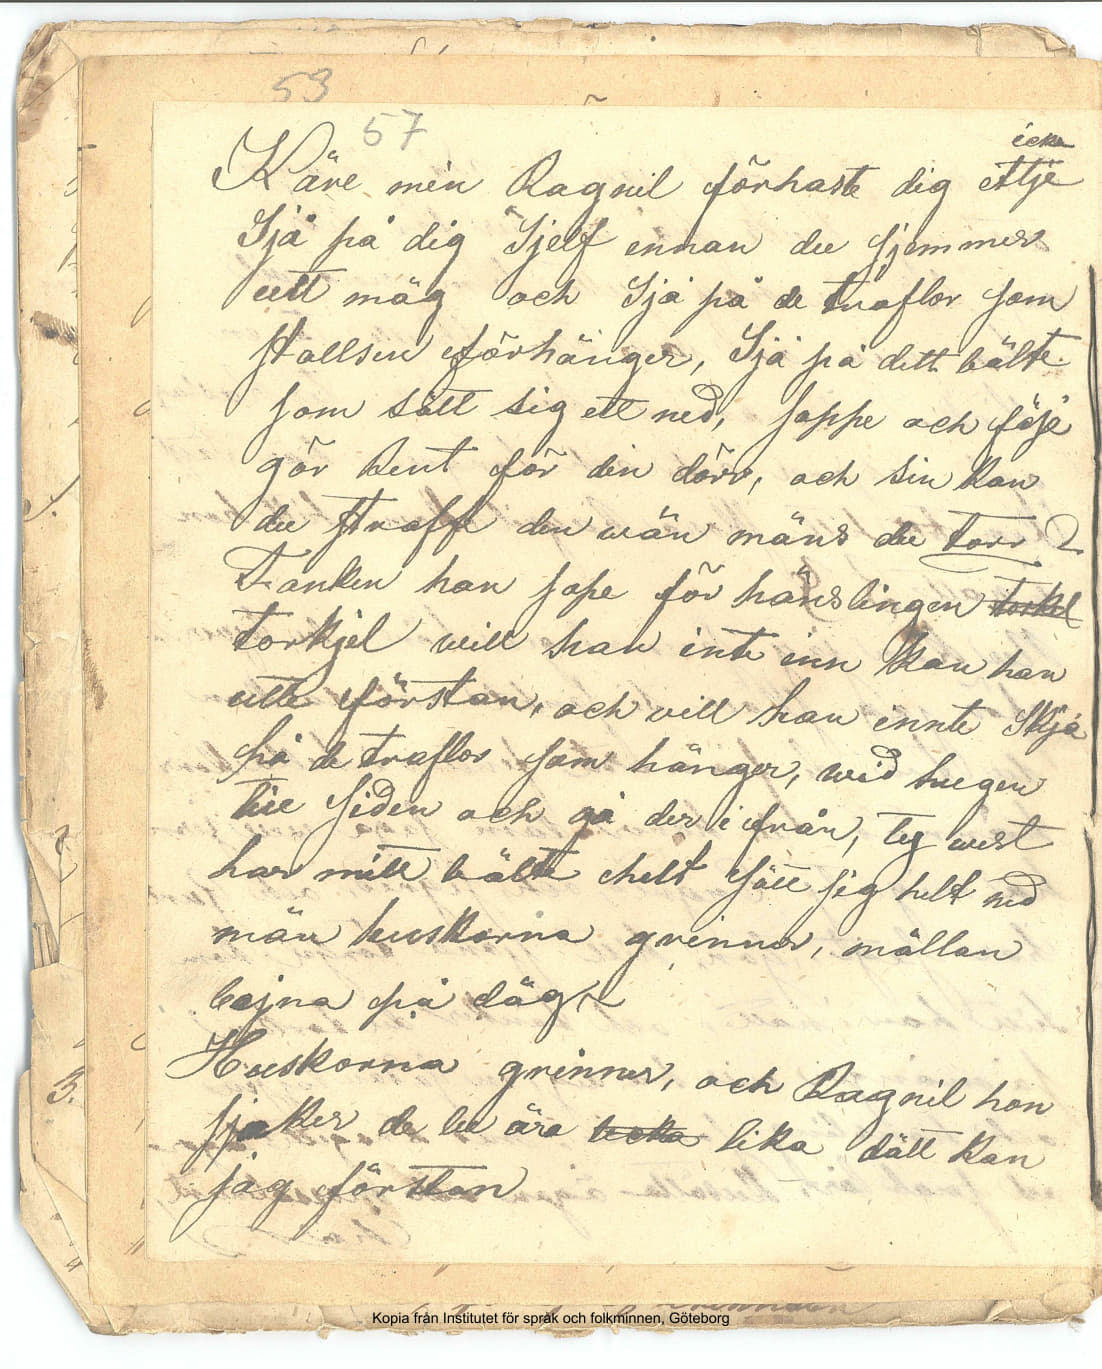 53
57
icke
Käre min Ragnil förhaste dig ittje
Sjå på dig Sjelf ennan du sjemmer
utt mäg och Sjå på de traflor som
Hallsen förhänger, Sjå på dett bälte
som sått sig ett ned, soppe och föje
gör rent för din dörr, och sin kan
du straffe den wän mäns du torr 2
Tanken han sope för hänslingen
torkjel will han inte inn kan han
utte förstan, och vill han innte Skjå
på de traflor som hänger, wid hugen
tue siden och gå der ifrån, tej west
har mitt bälte helt sått sig helt ned
män huskorna grinner, mällan
bejna på däg
Huskorna grinner, och Ragnil hon
sjaker de lu ära lika dätt kan
jag förstan
5.
Kopia från Institutet för språk och folkminnen, Göteborg